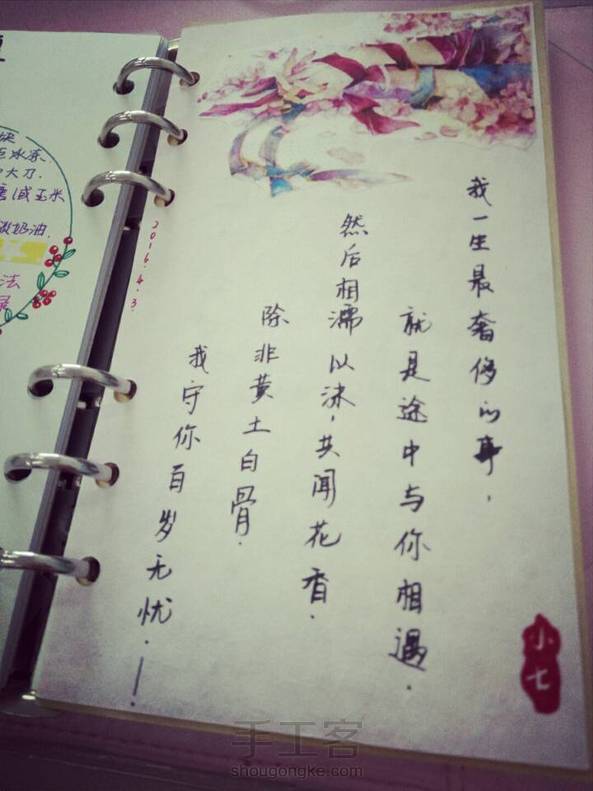 我一生最奢侈的事，
就是途中与你相遇.
然后相濡以沫，共闻花香.
除非黄土白骨.
我守你百岁无忧.——
小七
2016.4.3.
大刀.
咸玉米
奶油.
法
手工客
shougongke.com